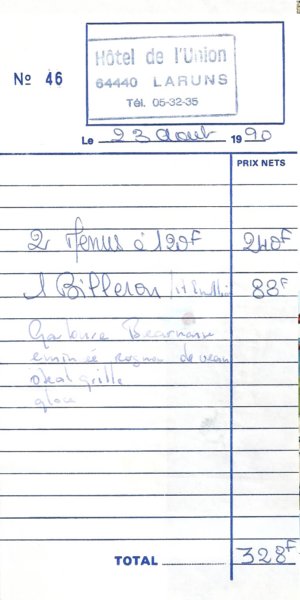 Hôtel de l'Union
64440 LARUNS
Tél. 05-32-35
No 46
Le 23 Aout 1990
PRIX NETS
2 Menus à 120F 240F
1 Billeron 88F
Garbure Béarnaise
émincé rognon de veau
steak grillé
glace
TOTAL 328F